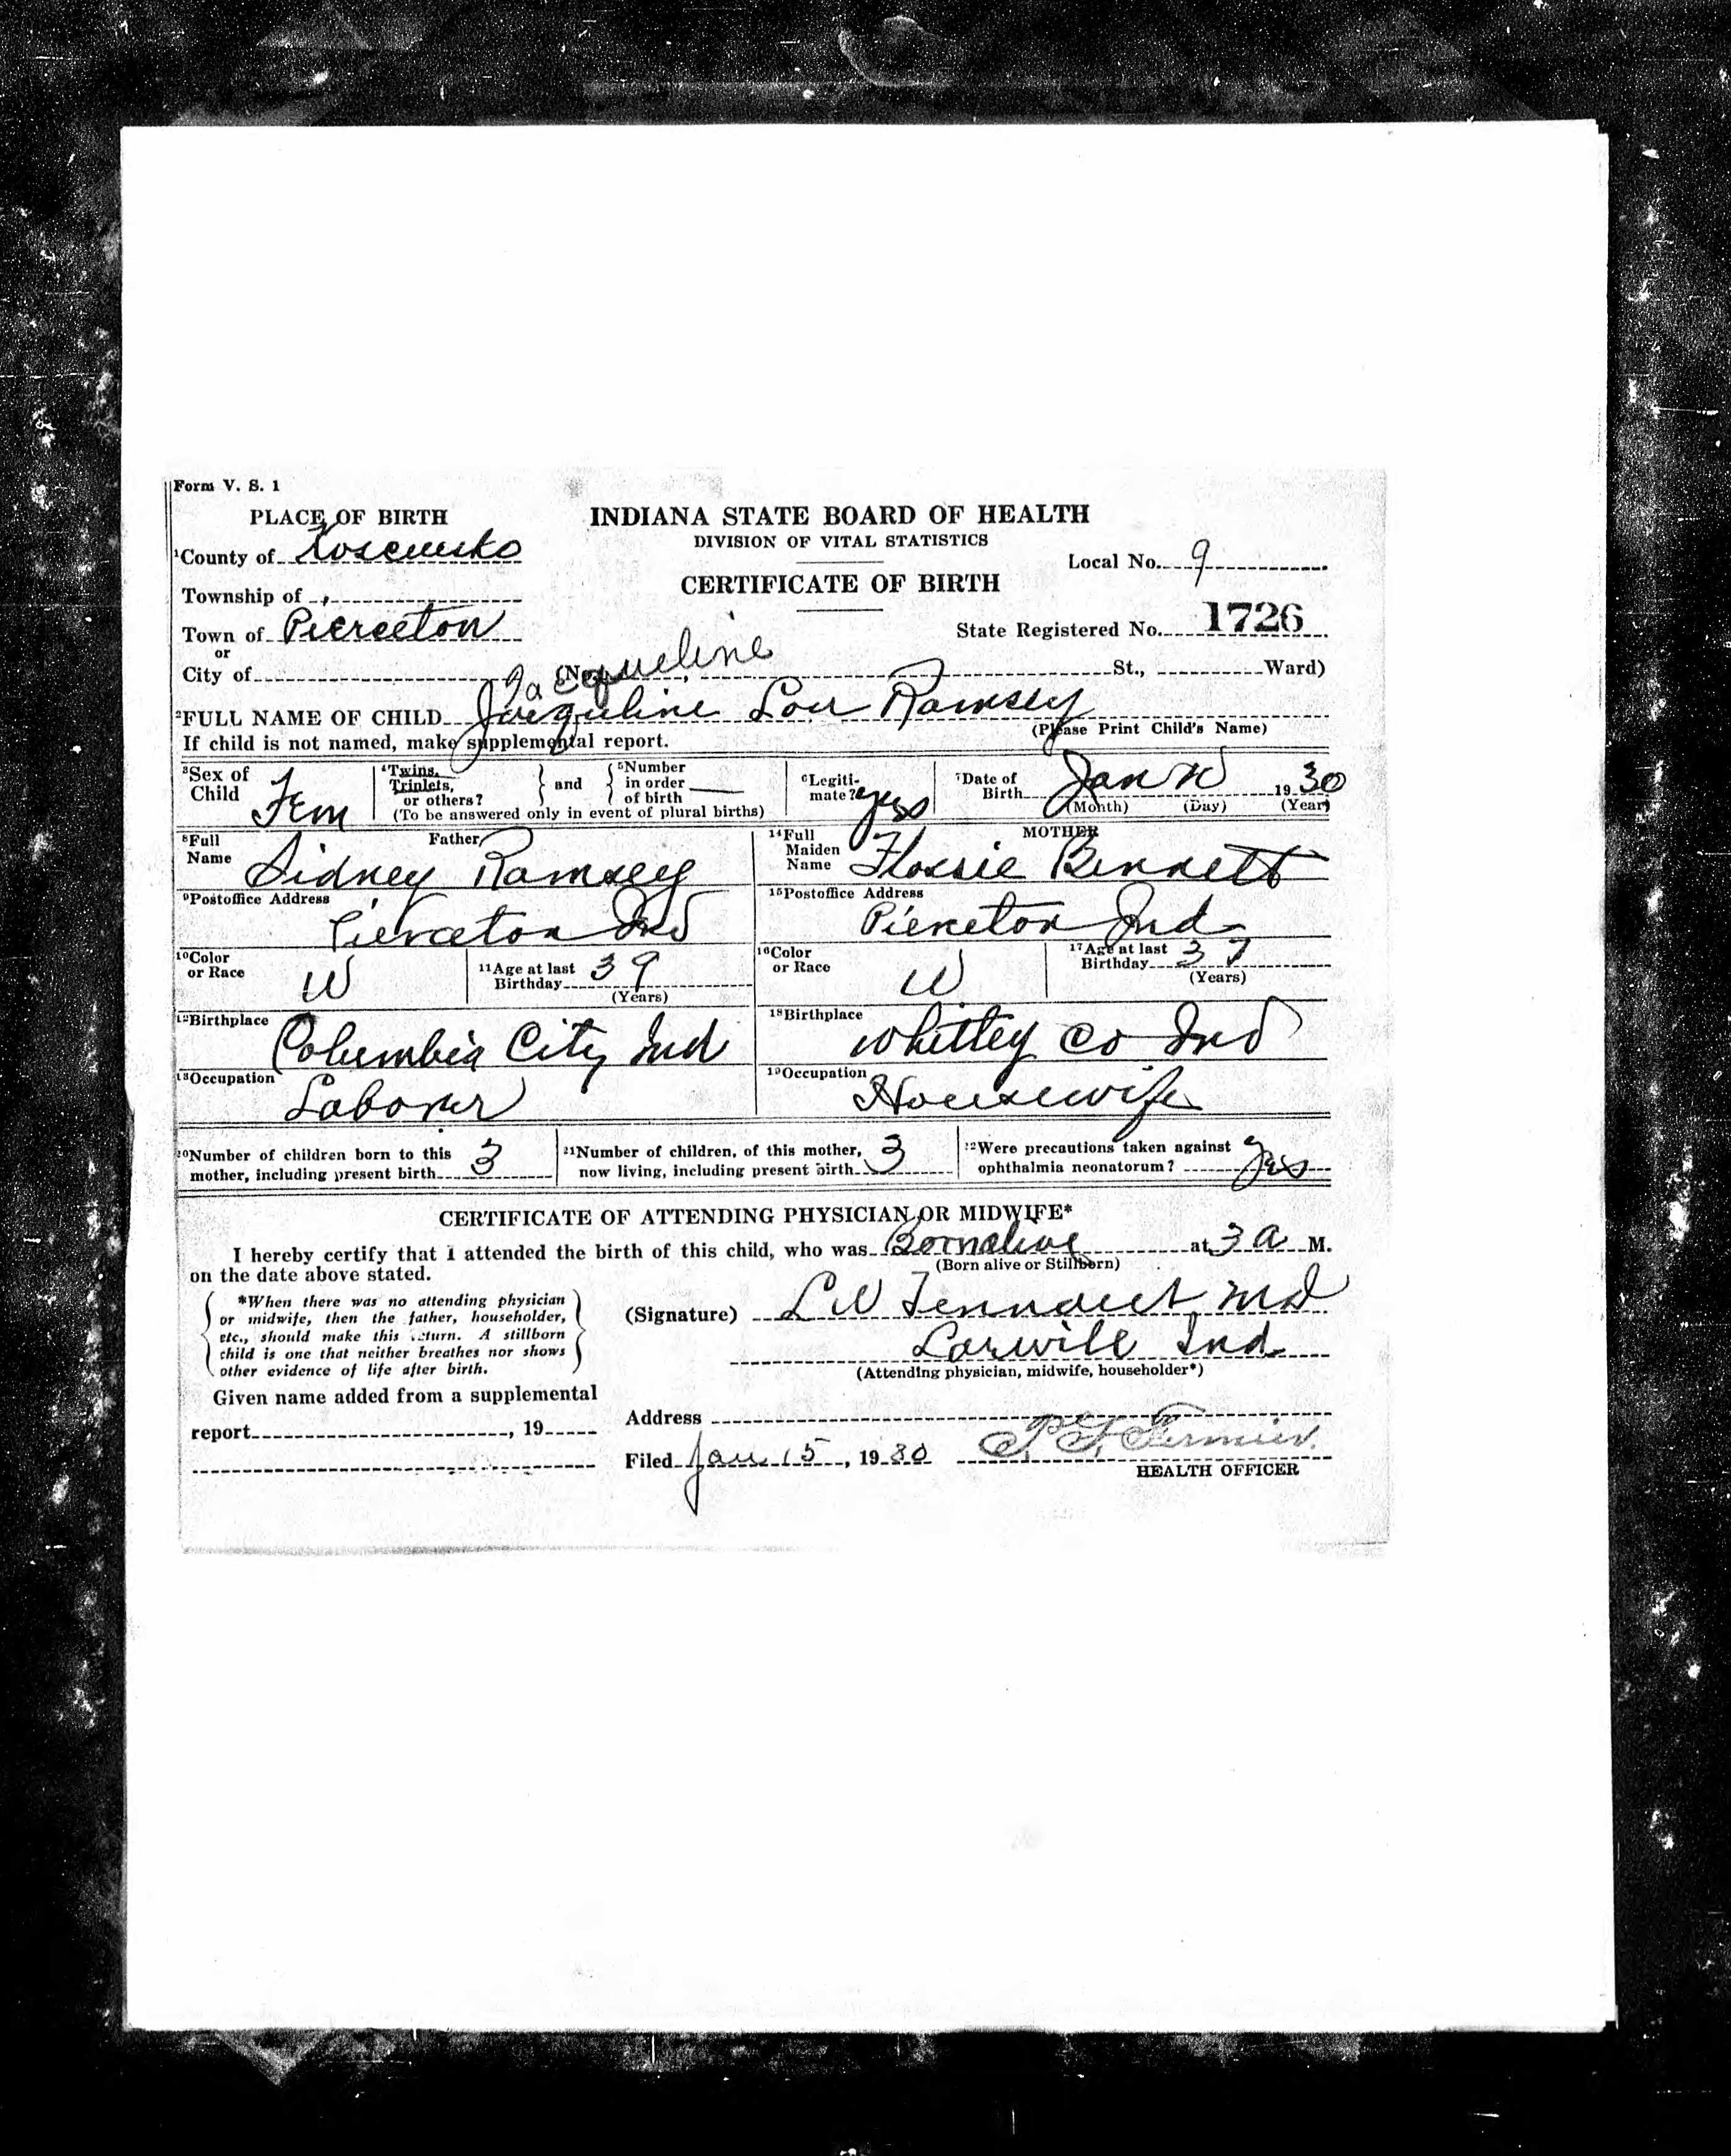 Form V. S. 1
PLACE OF BIRTH
INDIANA STATE BOARD OF HEALTH
DIVISION OF VITAL STATISTICS
1County of Kosciusko
Local No. 9
CERTIFICATE OF BIRTH
Township of
Town of Pierceton
State Registered No. 1726
or
City of (No. , St., Ward)
Jacqueline
2FULL NAME OF CHILD Jacquline Lou Ramsey
If child is not named, make supplemental report. (Please Print Child's Name)
3Sex of Child Fem
4Twins, Triplets, or others? } and { 5Number in order of birth
(To be answered only in event of plural births)
6Legitimate? yes
7Date of Birth Jan 1930
(Month) (Day) (Year)
Father
8Full Name Sidney Ramsey
MOTHER
14Full Maiden Name Flossie Bennett
9Postoffice Address Pierceton Ind
15Postoffice Address Pierceton Ind
10Color or Race W
11Age at last Birthday 39 (Years)
16Color or Race W
17Age at last Birthday 37 (Years)
12Birthplace Columbia City Ind
18Birthplace Whitley Co Ind
13Occupation Laborer
19Occupation Housewife
20Number of children born to this mother, including present birth 3
21Number of children, of this mother, now living, including present birth 3
22Were precautions taken against ophthalmia neonatorum? yes
CERTIFICATE OF ATTENDING PHYSICIAN OR MIDWIFE*
I hereby certify that I attended the birth of this child, who was Born alive at 3 a M.
(Born alive or Stillborn)
on the date above stated.
*When there was no attending physician
or midwife, then the father, householder,
etc., should make this return. A stillborn
child is one that neither breathes nor shows
other evidence of life after birth.
(Signature) Tennant Md
Larwill Ind
(Attending physician, midwife, householder*)
Given name added from a supplemental
report , 19
Address
Filed Jan 15, 1930
HEALTH OFFICER